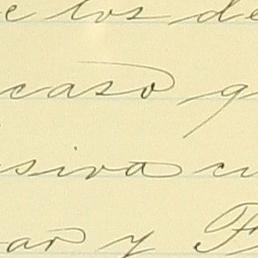 e los de
caso q
siva cu
ar y F